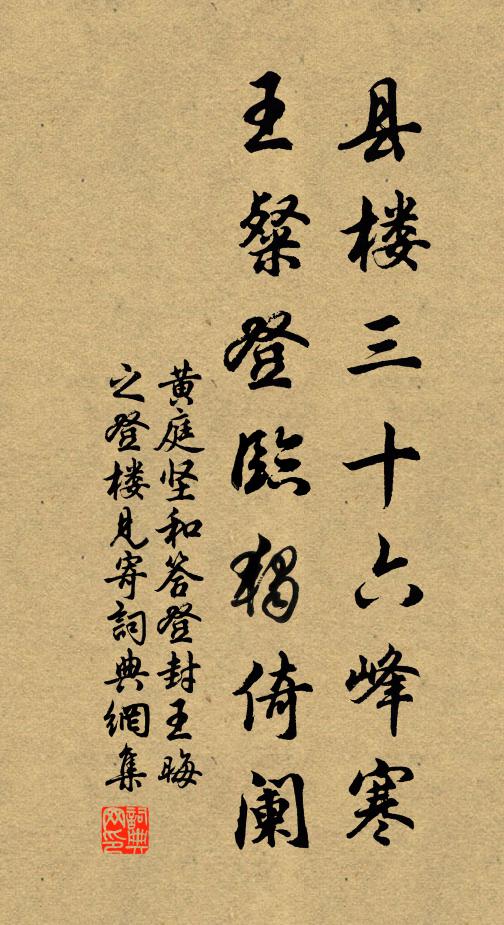 县楼三十六峰寒
王粲登临独倚阑
黄庭坚和答登封王晦
之登楼见寄詞典網集
詞典网印